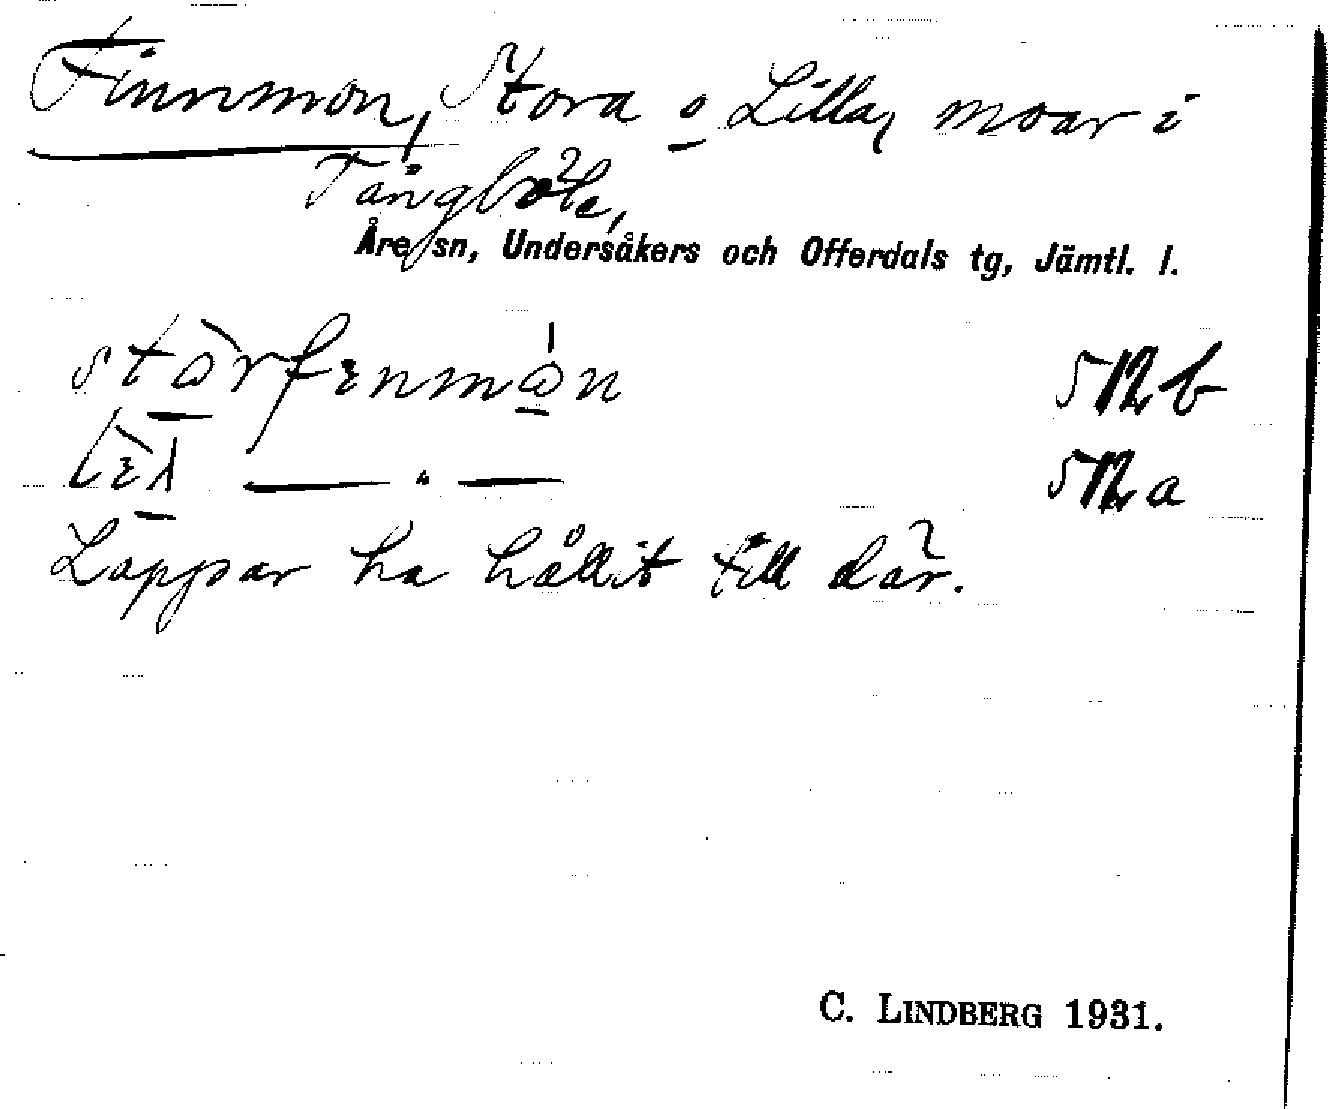 Finnmon, Stora o Lilla, moar i
Tångböle,
Åre sn, Undersåkers och Offerdals tg, Jämtl. l.
512 b
512 a
Lappar ha hållit till där.
C. LINDBERG 1931.